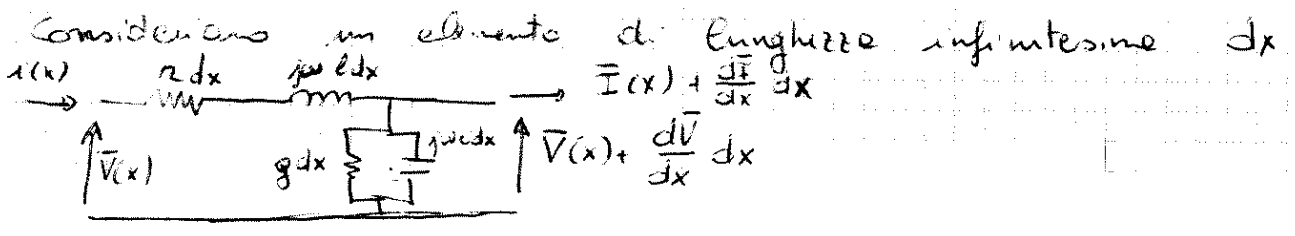 Consideriamo un elemento di lunghezza infinitesima dx
i(x) r dx jωl dx I̅(x) + dI̅/dx dx
V̅(x) g dx jωc dx V̅(x) + dV̅/dx dx